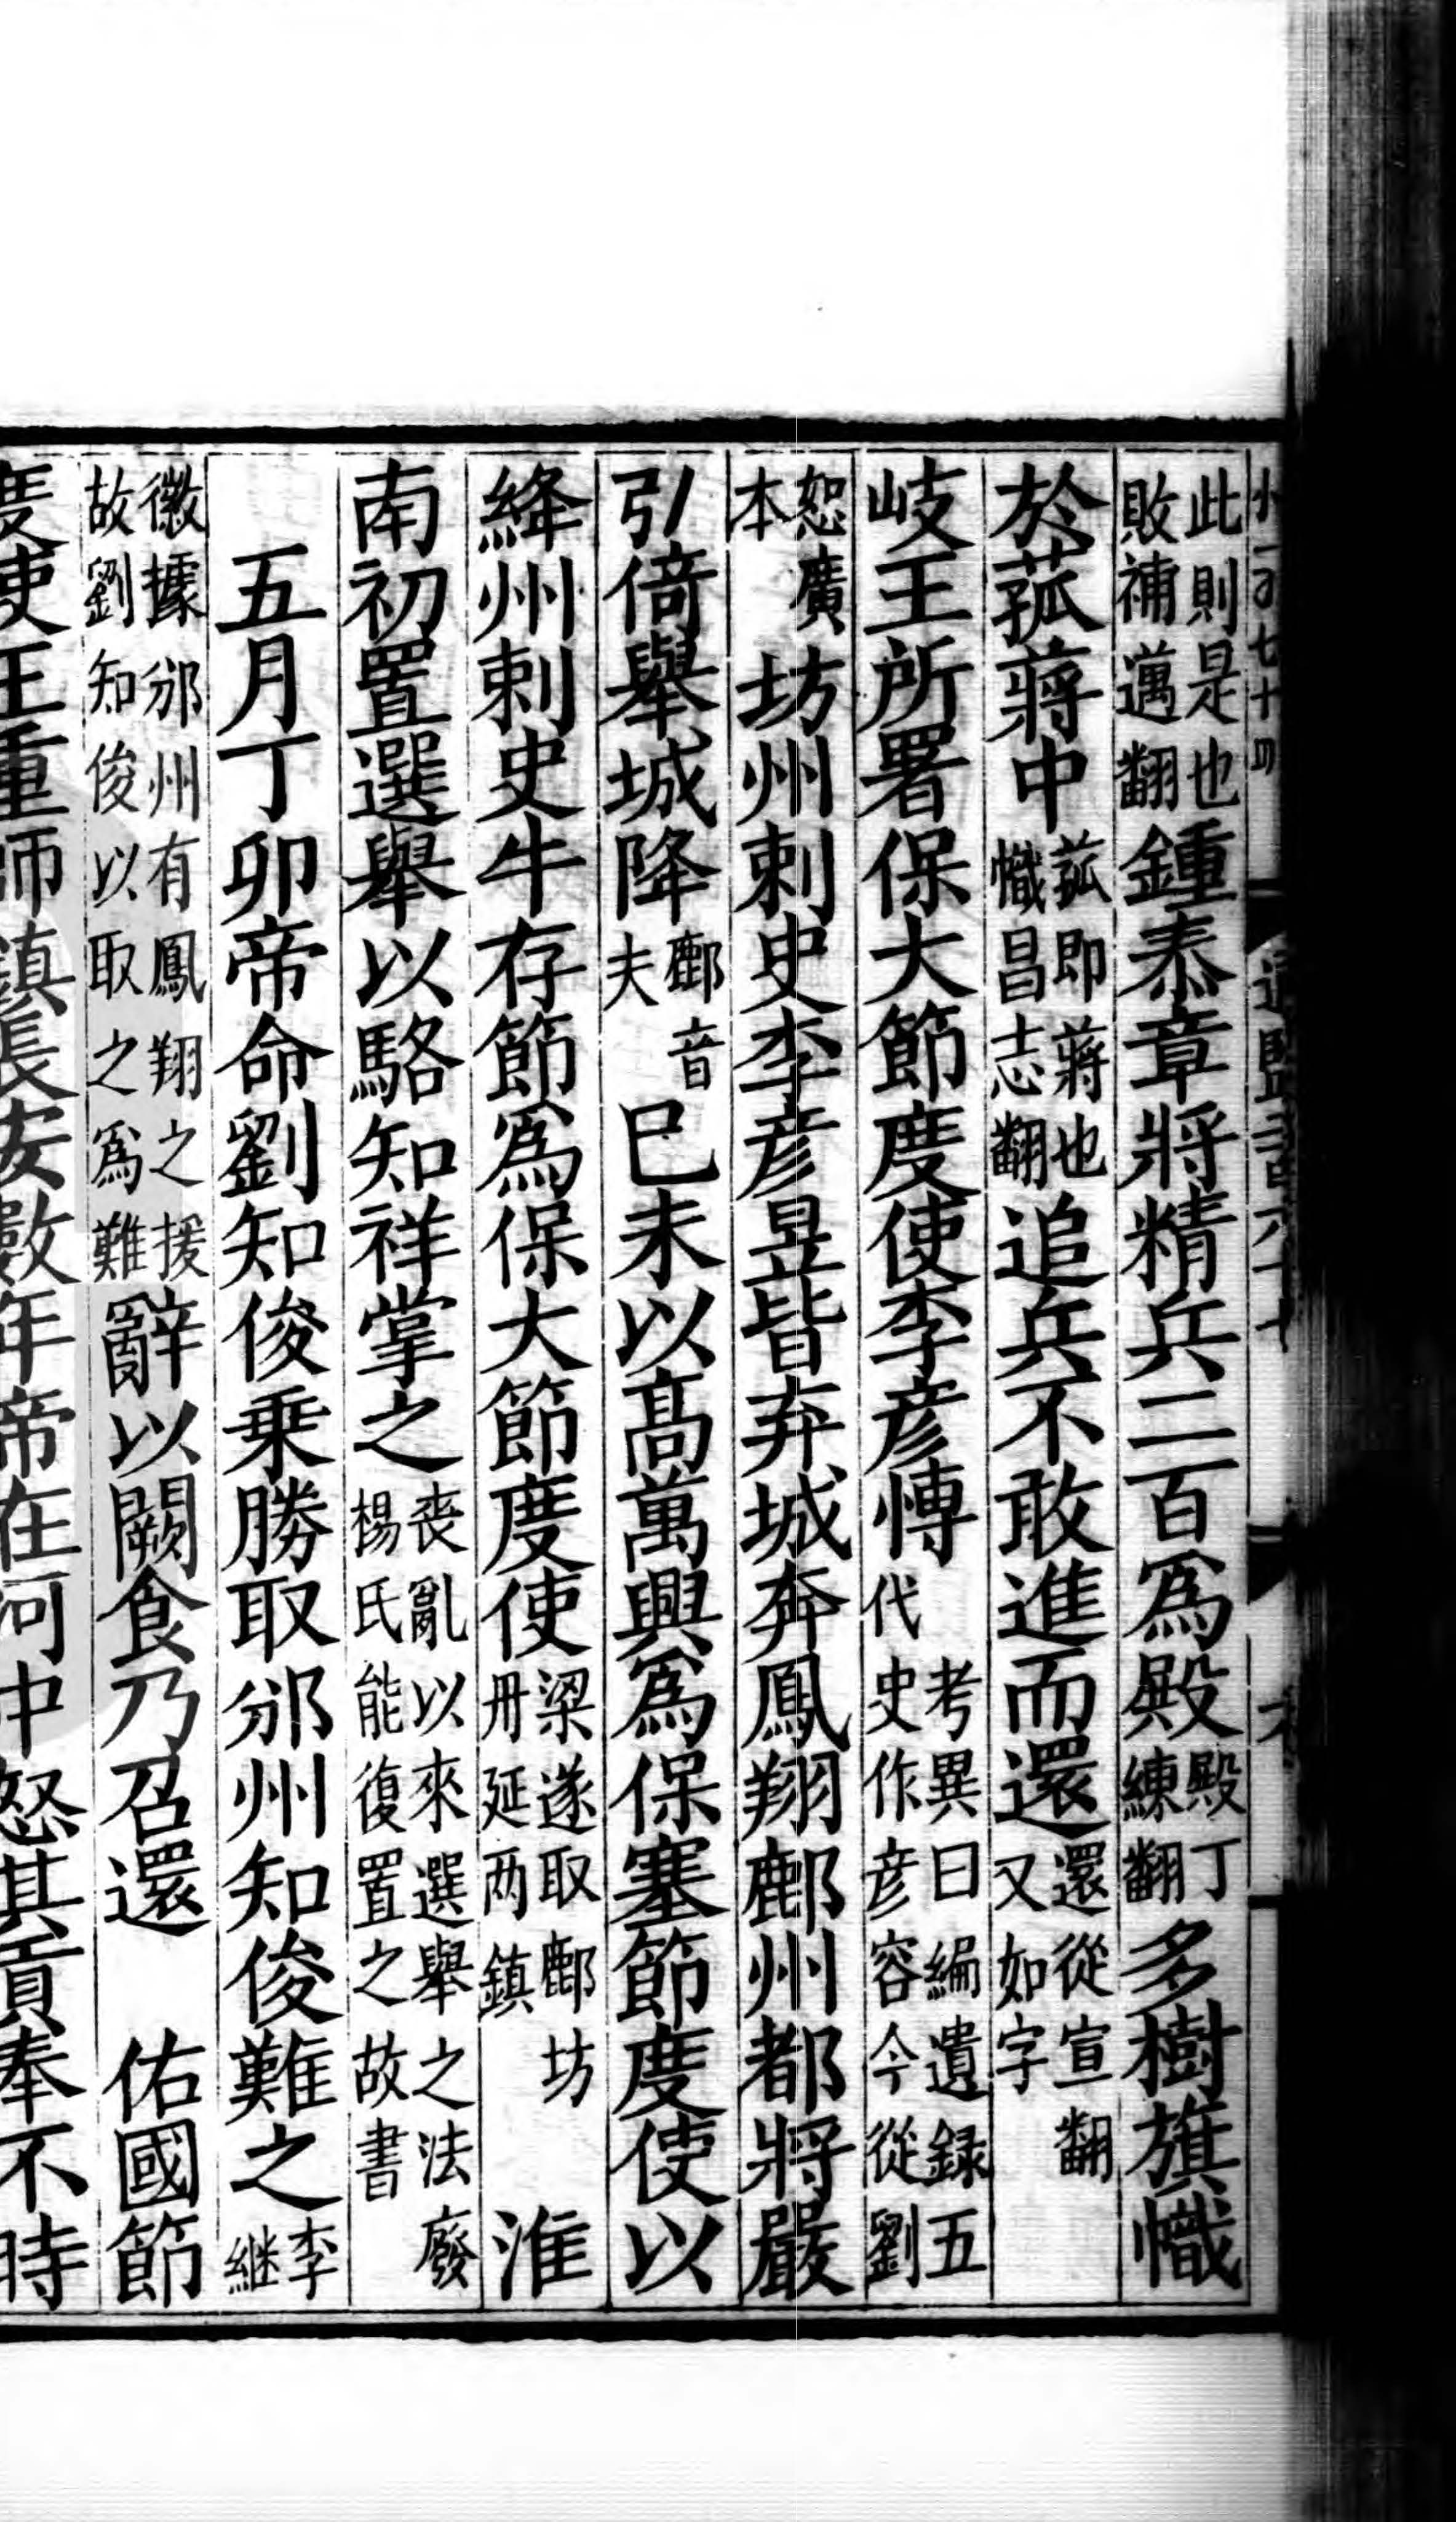 此則是也敗補邁翻鍾泰章將精兵二百為殿殿丁練翻多樹旗幟
於菰蔣中菰即蔣也幟昌志翻追兵不敢進而還還從宣翻又如字
岐王所署保大節度使李彥愽考異曰編遺録五代史作彥容今從劉
恕廣本坊州刺史李彥昱皆弃城奔鳳翔鄜州都將嚴
引倚舉城降鄜音夫巳未以高萬興為保塞節度使以
絳州刺史牛存節為保大節度使梁遂取鄜坊丹延两鎮淮
南初置選舉以駱知祥掌之喪亂以來選舉之法廢楊氏能復置之故書
五月丁卯帝命劉知俊乗勝取邠州知俊難之李継
徽據邠州有鳳翔之援故劉知俊以取之為難辭以闕食乃召還 佑國節
度使王重師鎮長安數年帝在河中怒其貢奉不時